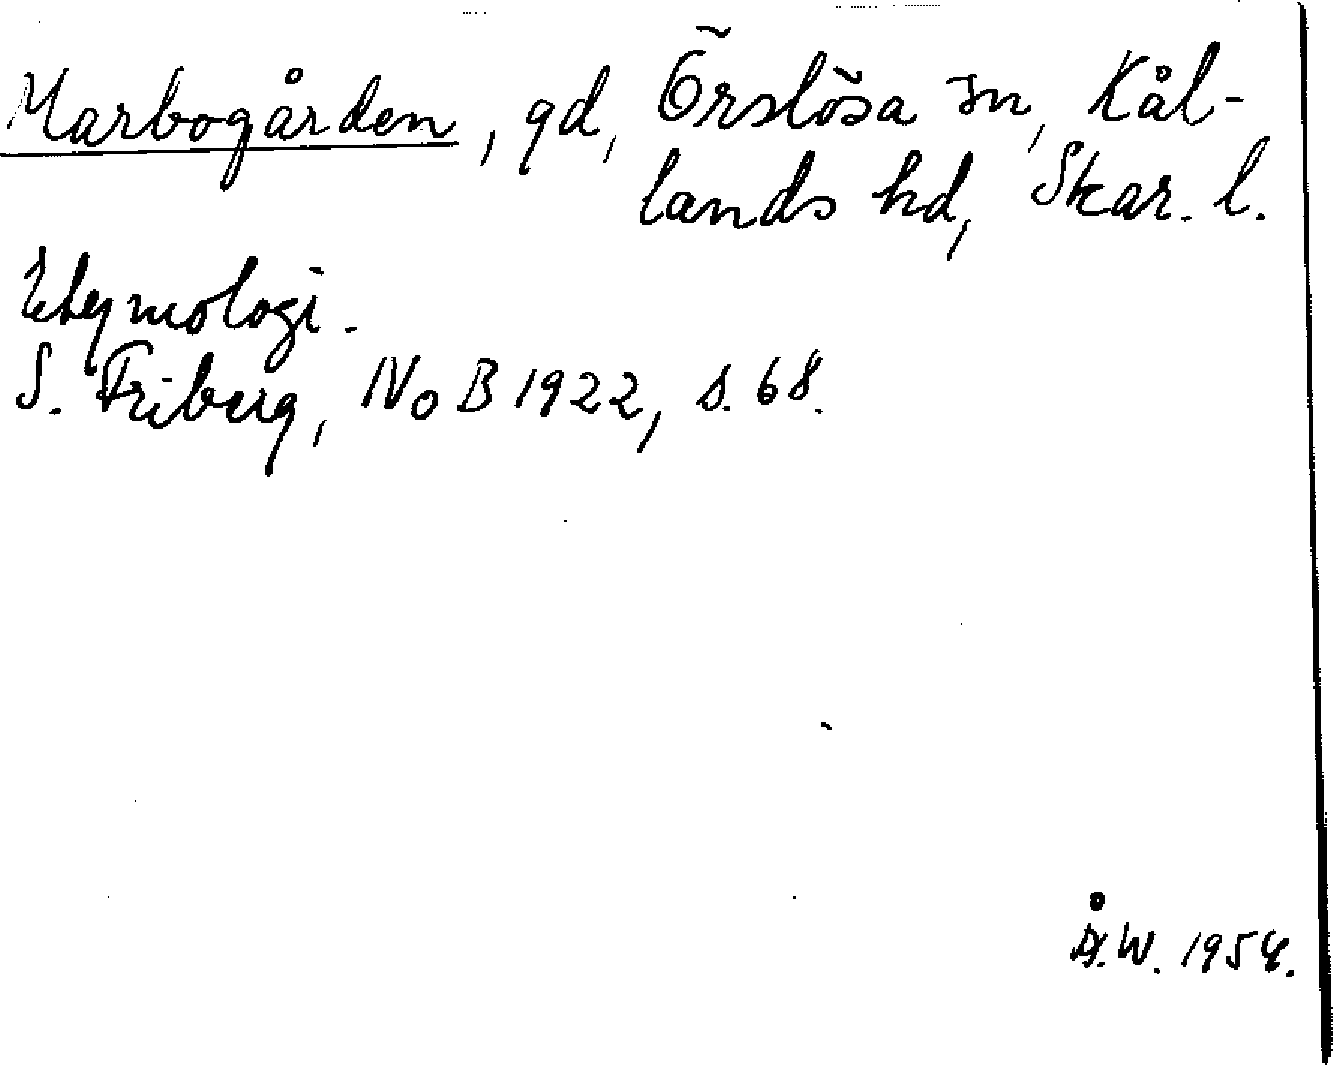 Marbogården, gd, Örslösa sn, Kål-
lands hd, Skar. l.
Etymologi.
S. Friberg, NoB 1922, s. 68.
Å.W. 1954.